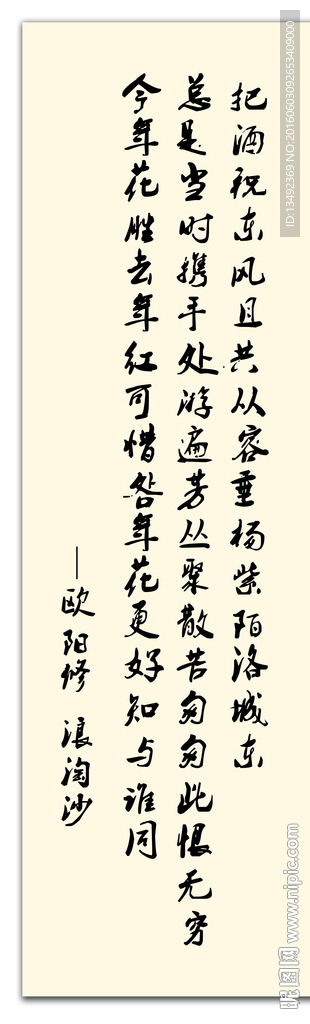 把酒祝东风且共从容垂杨紫陌洛城东
总是当时携手处游遍芳丛聚散苦匆匆此恨无穷
今年花胜去年红可惜咎年花更好知与谁同
—欧阳修 浪淘沙
ID:13492369 NO:20160603092653409000
昵图网 www.nipic.com